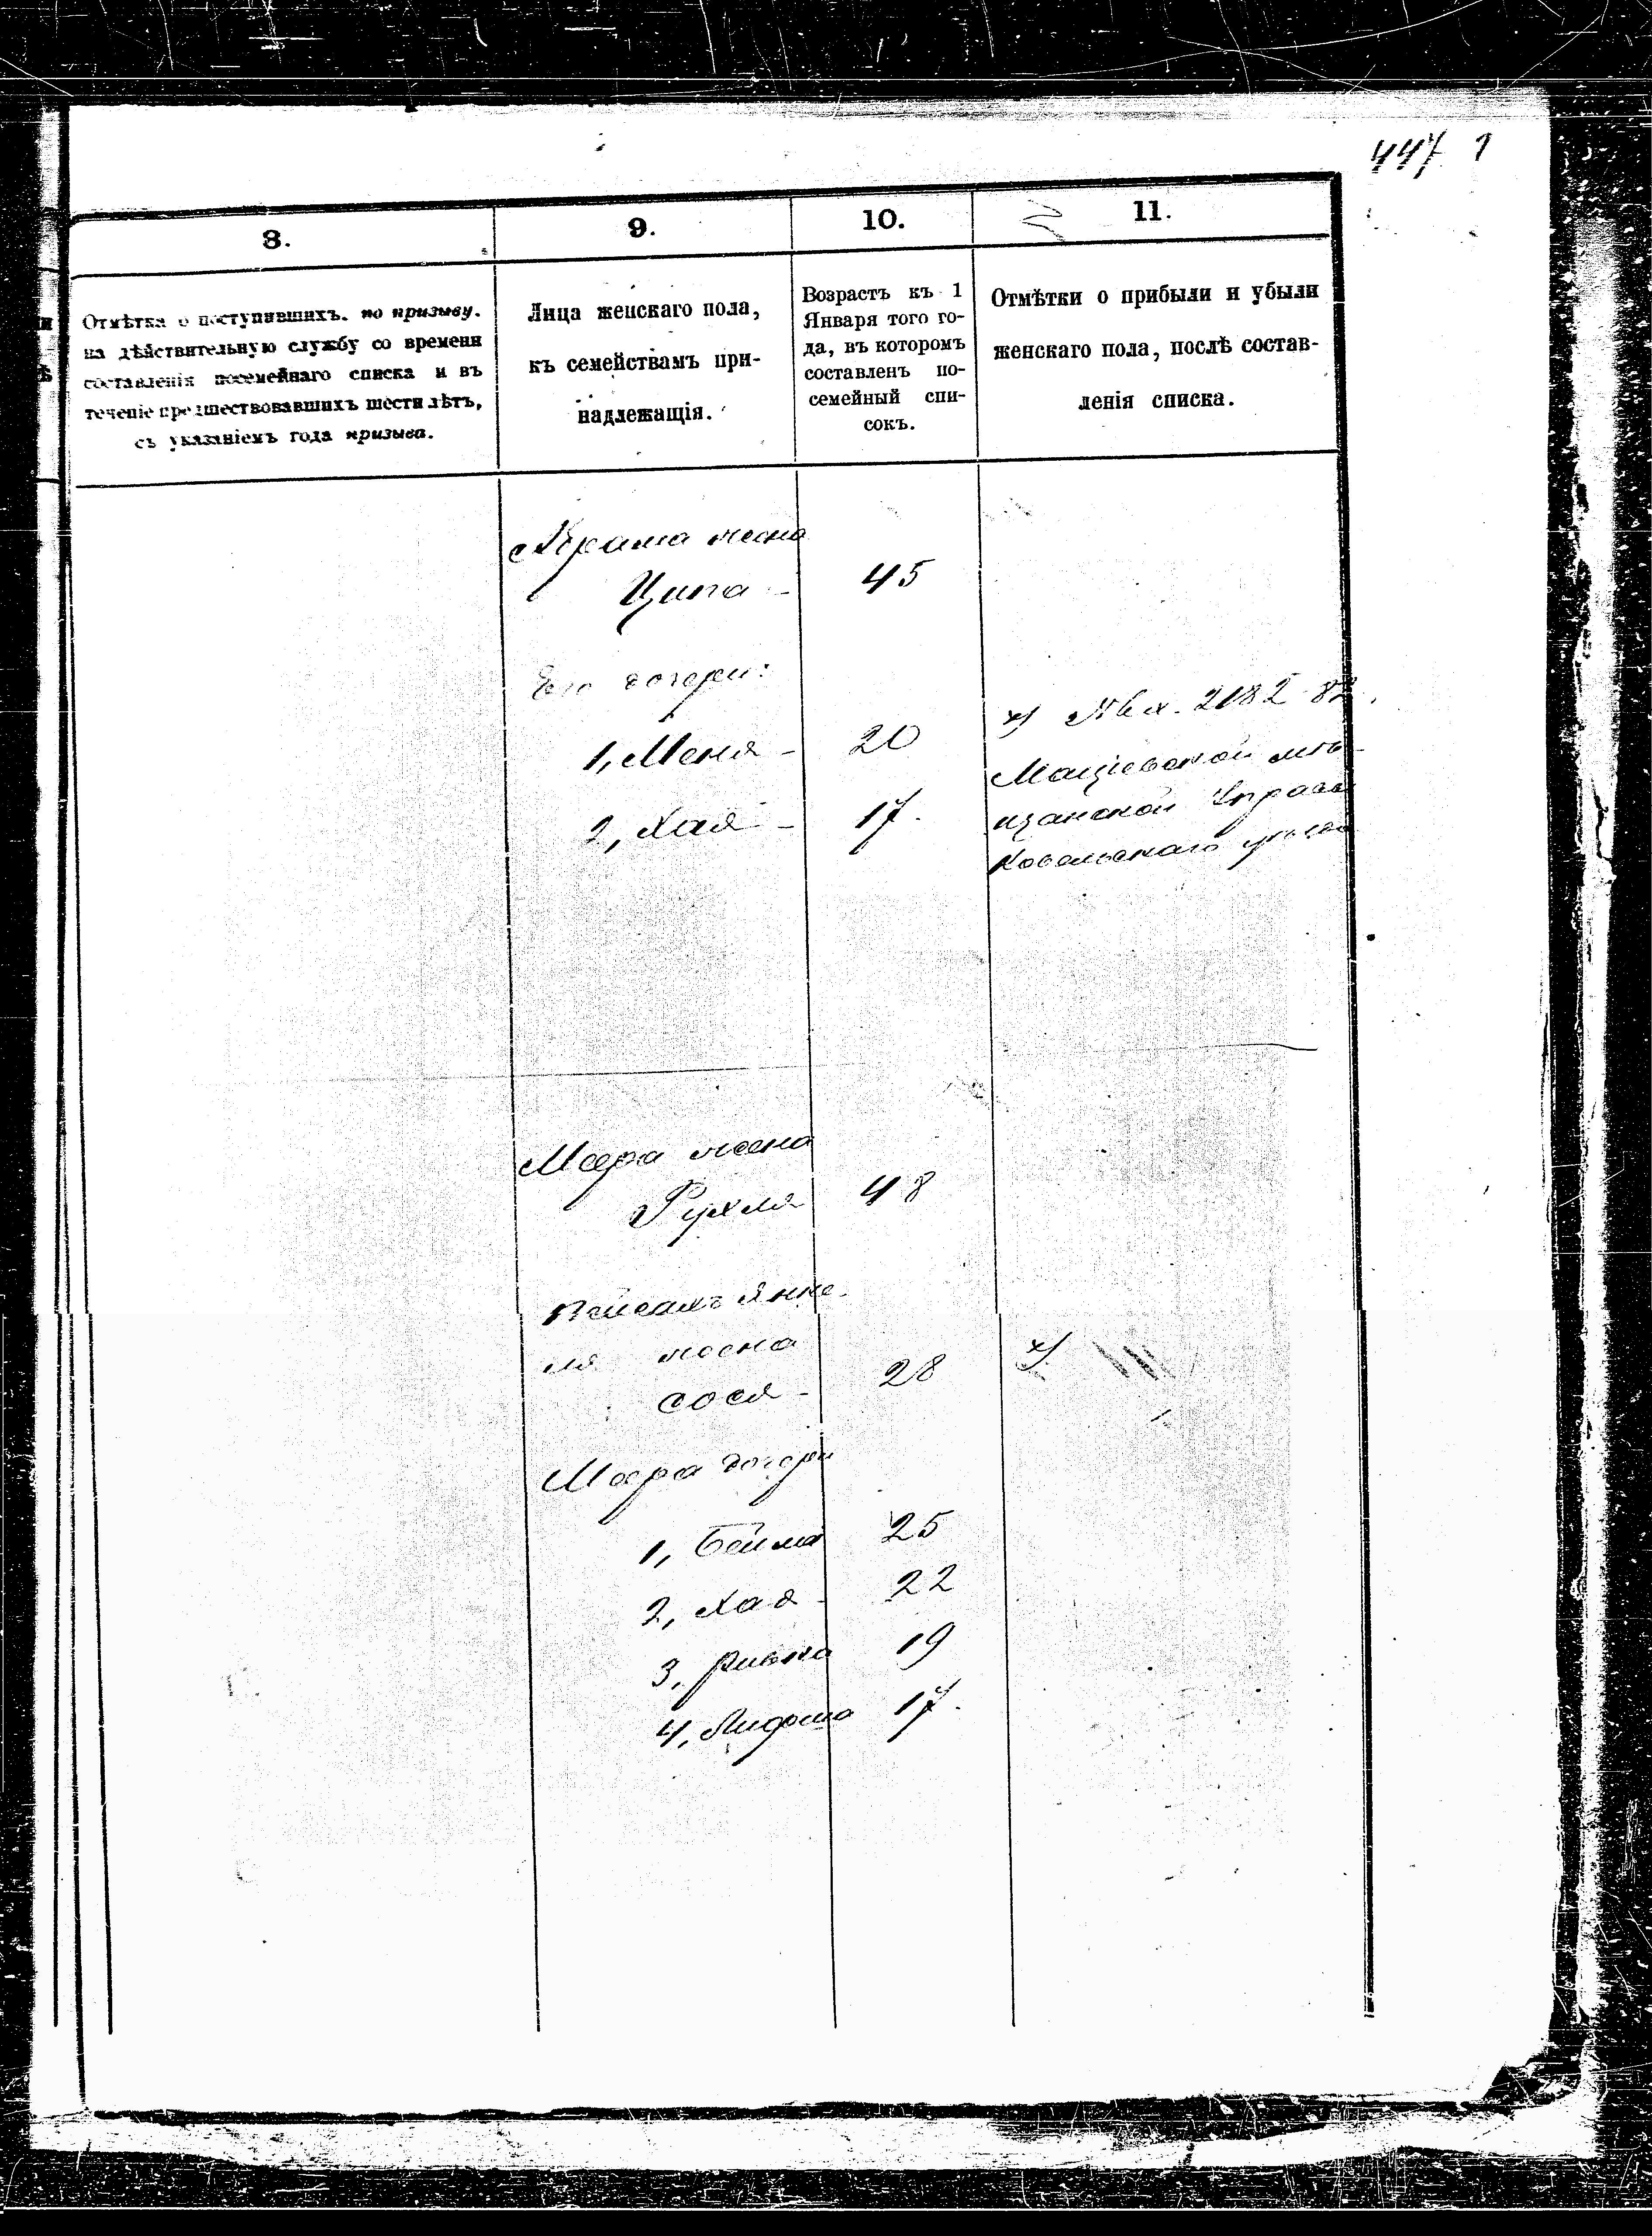 447 1
8.
9.
10.
11.
Отмѣтка о поступившихъ. по призыву.
на дѣйствительную службу со времени
составленія посемейнаго списка и въ
теченіе предшествовавшихъ шести лѣтъ,
съ указаніемъ года призыва.
Лица женскаго пола,
къ семействамъ при-
надлежащія.
Возрастъ къ 1
Января того го-
да, въ которомъ
составленъ по-
семейный спи-
сокъ.
Отмѣтки о прибыли и убыли
женскаго пола, послѣ состав-
ленія списка.
жена
Ципа - 45
Его дочери:
1, Меня - 20
2, Хая - 17.
2182 82
Мацiевской мѣ-
щанской Управы
Ковельскаго уѣзда
Меера жена
Рухля 48
Пейсахъ Янке-
ля жена
Сося - 28
Меера дочери
1, Бейла 25
2, Хая - 22
3, Ривка 19
4, 17.